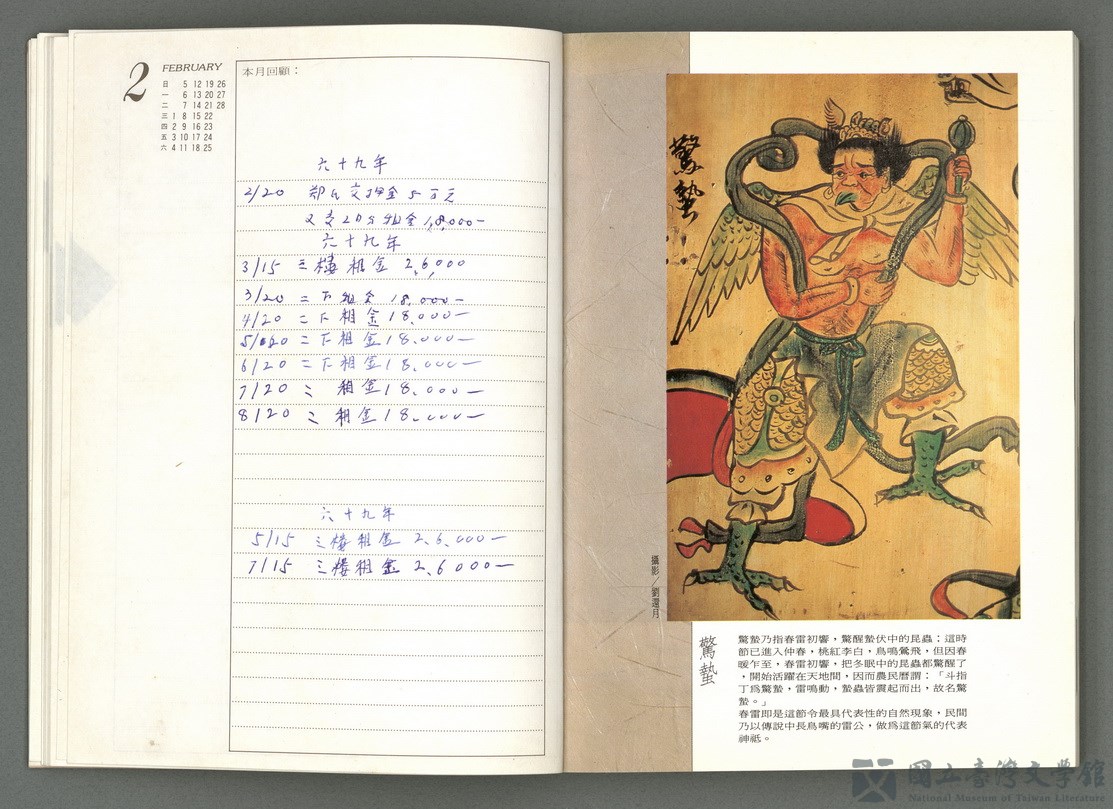 2
FEBRUARY
日 5 12 19 26
一 6 13 20 27
二 7 14 21 28
三 1 8 15 22
四 2 9 16 23
五 3 10 17 24
六 4 11 18 25
本月回顧：
六十九年
2/20 鄭氏交押金5万元
又支2月分租金18,000-
六十九年
3/15 三樓租金 26,000
3/20 二下租金 18,000-
4/20 二下租金 18,000-
5/20 二下租金 18,000-
6/20 二下租金 18,000-
7/20 二 租金 18,000-
8/20 二 租金 18,000-
六十九年
5/15 三樓租金 26,000-
7/15 三樓租金 26,000-
驚蟄
攝影／劉還月
驚蟄
驚蟄乃指春雷初響，驚醒蟄伏中的昆蟲；這時
節已進入仲春，桃紅李白，鳥鳴鶯飛，但因春
暖乍至，春雷初響，把冬眠中的昆蟲都驚醒了
，開始活躍在天地間，因而農民曆謂：「斗指
丁為驚蟄，雷鳴動，蟄蟲皆震起而出，故名驚
蟄。」
春雷即是這節令最具代表性的自然現象，民間
乃以傳說中長鳥嘴的雷公，做為這節氣的代表
神祇。
國立臺灣文學館
National Museum of Taiwan Literature